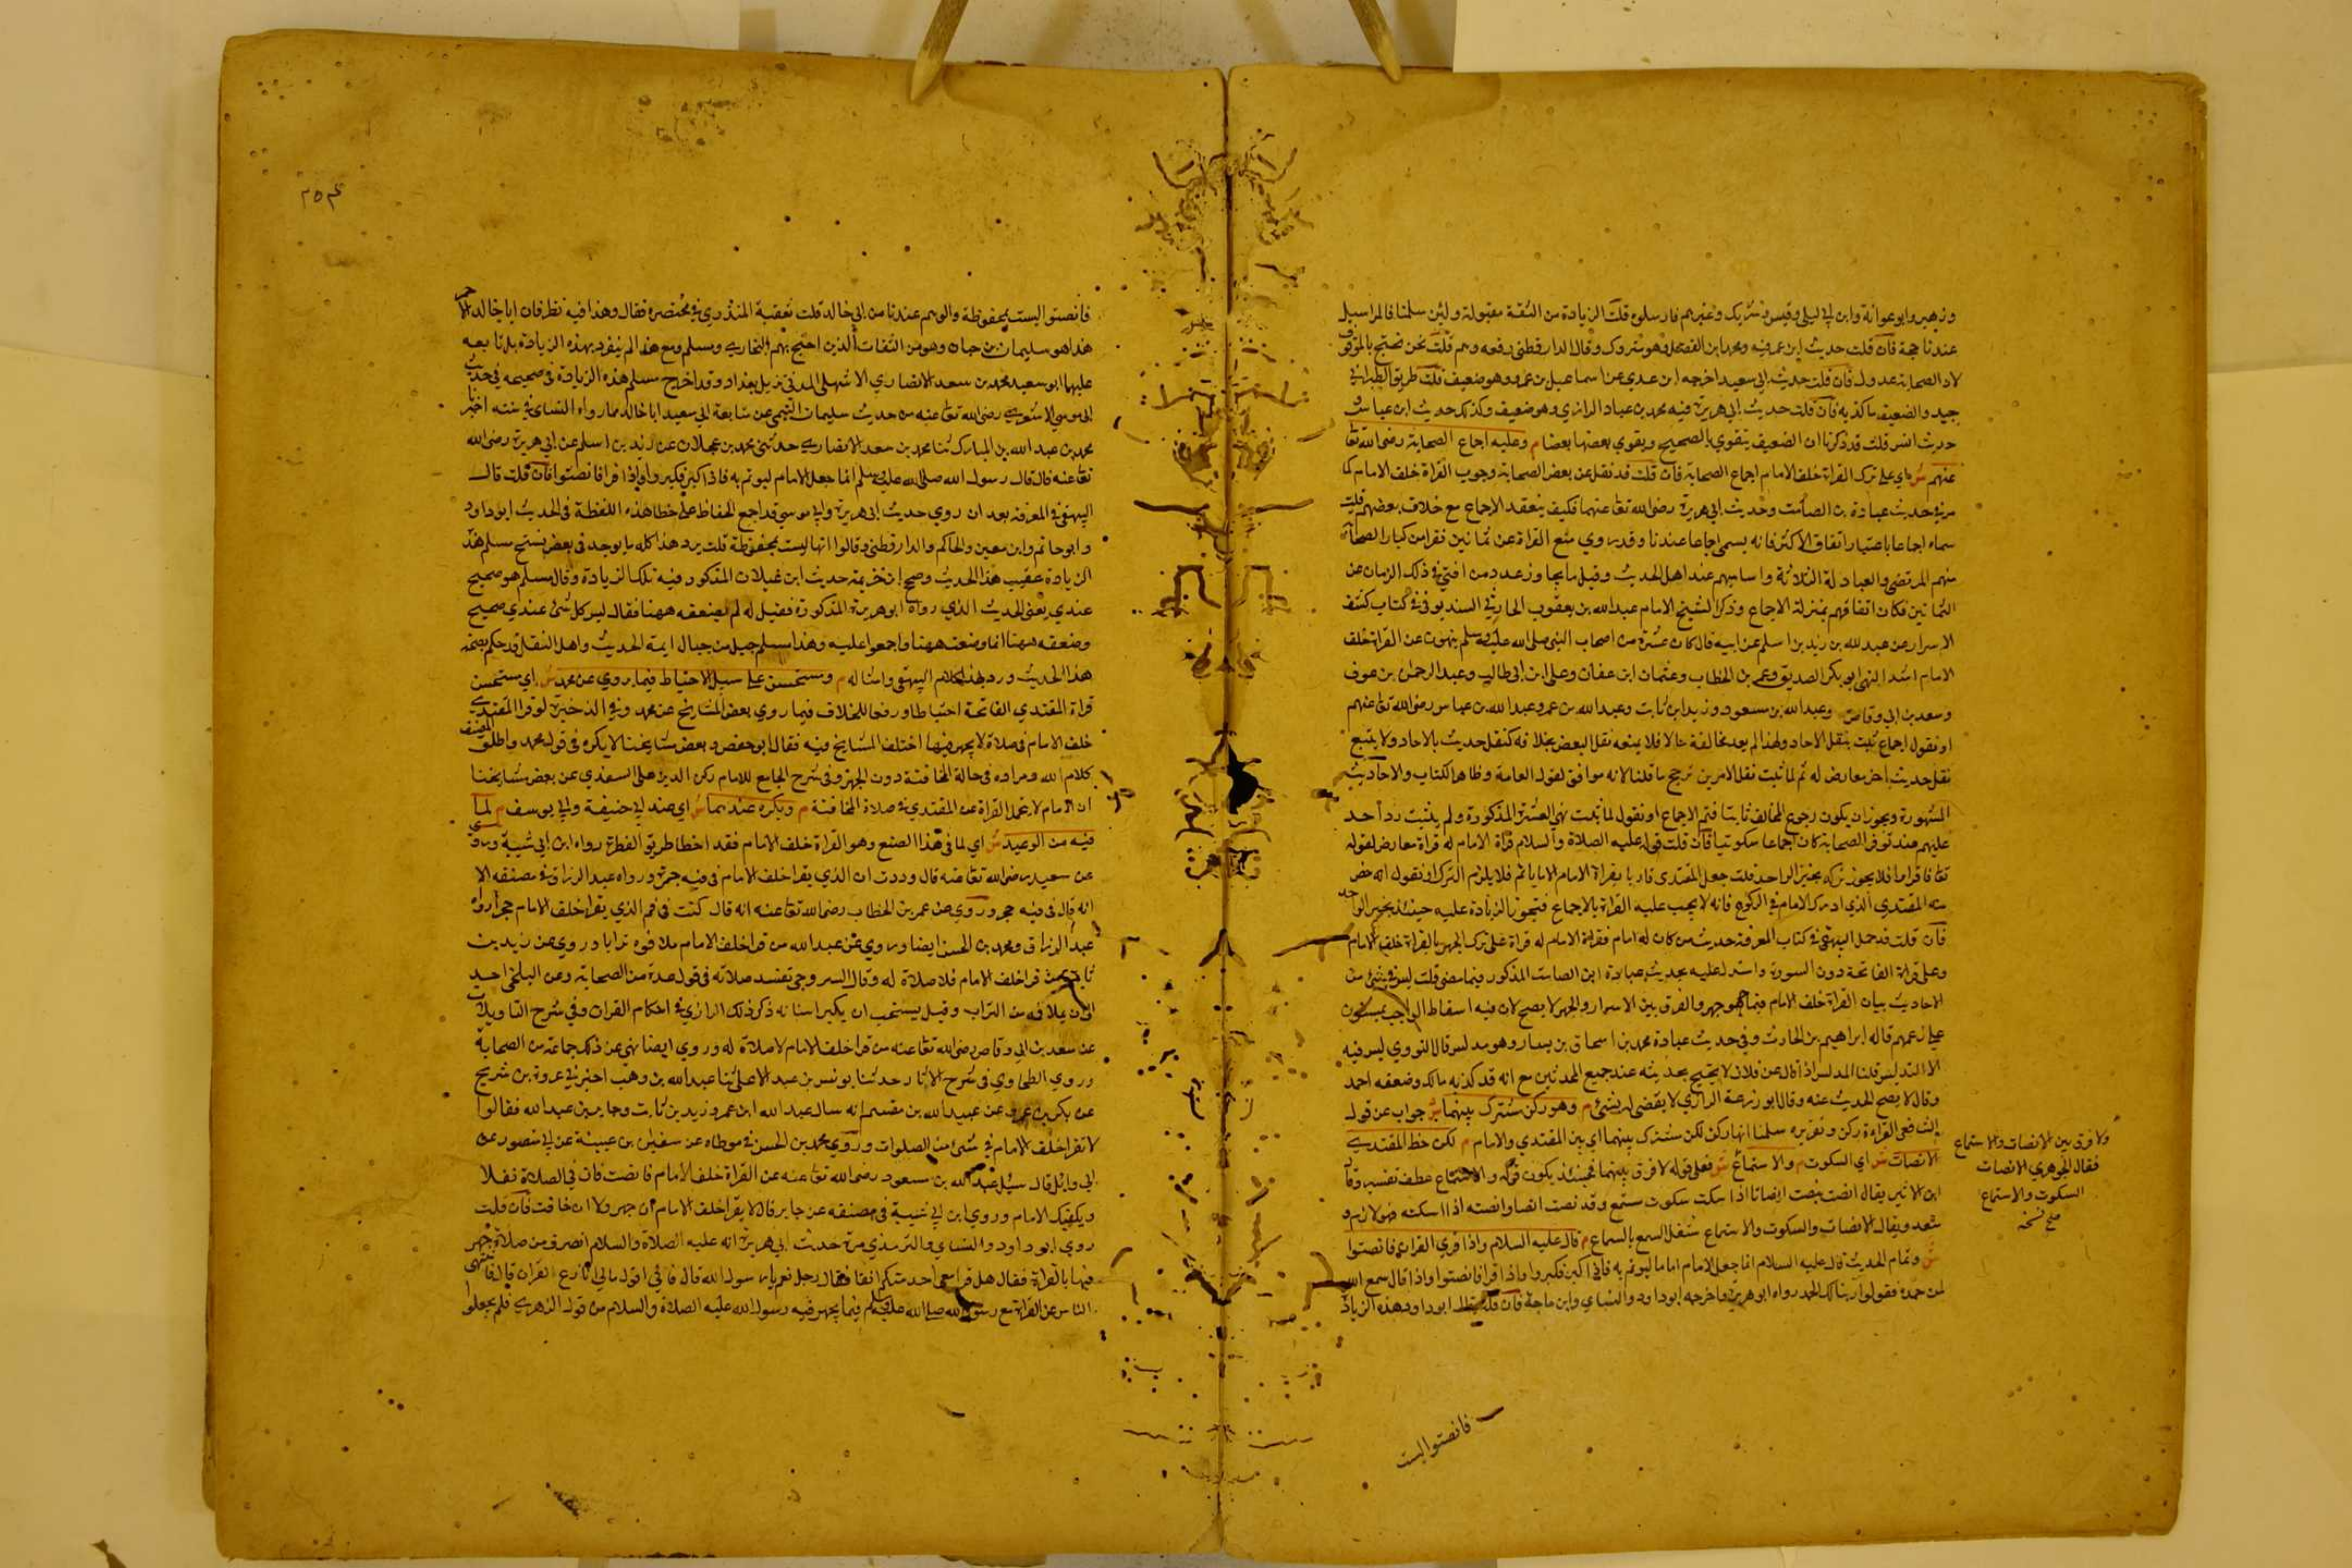 وزهير وابو عوانة وابن ابي ليلى وقيس وشريك وغيرهم فارسلوه قلت الزيادة من الثقة مقبولة ولئن سلمنا فالمراسيل
عندنا حجة فان قلت حديث ابن عمر فيه محمد ابن الفضل وهو متروك وقال الدارقطني رفعه وهم قلت نحن نحتج بالموقوف
لان الصحابة عدول فان قلت حديث ابي سعيد اخرجه ابن عدي عن اسماعيل بن عمرو وهو ضعيف قلت طريق الطبراني
جيد والضعيف ما كذبه فان قلت حديث ابي هريرة فيه محمد بن عباد الرازي وهو ضعيف وكذلك حديث ابن عباس
حديث انس قلت قد ذكرنا ان الضعيف يتقوي بالصحيح ويقوي بعضها بعضا م وعليه اجماع الصحابة رضي الله تعا
عنهم ش اي على ترك القراة خلف الامام اجماع الصحابة فان قلت قد نقل عن بعض الصحابة وجوب القراة خلف الامام كما
مر في حديث عبادة بن الصامت وحديث ابي هريرة رضي الله تعا عنهما فكيف ينعقد الاجماع مع خلاف بعضهم قلت
سماه اجماعا باعتبار اتفاق الاكثر فانه يسمى اجماعا عندنا وقد روي منع القراة عن ثمانين نفرا من كبار الصحابة
منهم المرتضى والعبادلة الثلاثة واساميهم عند اهل الحديث وقيل ما يجاوز عدد من افتى في ذلك الزمان عن
الثمانين فكان اتفاقهم بمنزلة الاجماع وذكر الشيخ الامام عبد الله بن يعقوب الحارثي السنديوني في كتاب كشف
الاسرار عن عبد الله بن زيد بن اسلم عن ابيه قال كان عشرة من اصحاب النبي صلى الله عليه وسلم ينهون عن القراة خلف
الامام اشد النهي ابو بكر الصديق وعمر بن الخطاب وعثمان ابن عفان وعلى ابن ابي طالب وعبد الرحمن بن عوف
وسعد بن ابي وقاص وعبد الله بن مسعود وزيد ابن ثابت وعبد الله بن عمر وعبد الله بن عباس رضي الله تعا عنهم
او نقول اجماع ثبت بنقل الاحاد ولهذا لم يعد مخالفه ضالا فلا يمنعه نقل البعض بخلافه كنقل حديث بالاحاد ولا يمتنع
نقل حديث اخر معارض له ثم لما ثبت نقل الامرين ترجح ما قلنا لانه موافق لقول العامة وظاهر الكتاب والاحاديث
المشهورة ويجوز ان يكون رجوع المخالف ثابتا فتم الاجماع او نقول لما ثبت نهي العشرة المذكورة ولم يثبت رد احد
عليهم عند توفر الصحابة كان اجماعا سكوتيا فان قلت قوله عليه الصلاة والسلام قراة الامام له قراة معارض لقوله
تعا فاقراوا فلا يجوز تركه بخبر الواحد قلت جعل المقتدي قاريا بقراة الامام فلا يلزم الترك او نقول انه خص
منه المقتدي الذي ادرك الامام في الركوع فانه لا يجب عليه القراة بالاجماع فتجوز الزيادة عليه حينئذ بخبر الواحد
فان قلت قد حمل البيهقي في كتاب المعرفة حديث من كان له امام فقراة الامام له قراة على ترك الجهر بالقراة خلف الامام
وعلى قراة الفاتحة دون السورة واستدل عليه بحديث عبادة ابن الصامت المذكور فيما مضى قلت ليس في شئ من
الاحاديث بيان القراة خلف الامام فيما جهر والفرق بين الاسرار والجهر لا يصح لان فيه اسقاط الواجب بمسنون
على زعمهم قاله ابراهيم بن الحارث وفي حديث عبادة محمد بن اسحاق بن يسار وهو مدلس قال النووي ليس فيه
الا التدليس قلنا المدلس اذا قال عن فلان لا يحتج بحديثه عند جميع المحدثين مع انه قد كذبه مالك وضعفه احمد
وقال لا يصح الحديث عنه وقال ابو زرعة الرازي لا يقضى له بشئ م وهو ركن مشترك بينهما ش جواب عن قول
الشافعي القراءة ركن وتقريره سلمنا انها ركن لكن مشترك بينهما اي بين المقتدي والامام م لكن حظ المقتدي
الانصات ش اي السكوت م والاستماع ش فعلى قوله لا فرق بينهما فحينئذ يكون قوله والاستماع عطف تفسير وقال
ابن الاثير يقال انصت ينصت انصاتا اذا سكت سكوت مستمع وقد نصت انصا وانصته اذا اسكته فهو لازم و
متعد ويقال الانصات والسكوت والاستماع شغل السمع بالسماع م قال عليه السلام واذا قري القران فانصتوا
ش وتمام الحديث قال عليه السلام انما جعل الامام اماما ليوتم به فاذا كبر فكبروا واذا قرا فانصتوا واذا قال سمع الله
لمن حمده فقولوا ربنا لك الحمد رواه ابو هريرة واخرجه ابو داود والنساي وابن ماجة فان قلت قال ابو داود هذه الزيادة
ولا فرق بين الانصات والاستماع
فقال الجوهري الانصات
السكوت والاستماع
صح نسخه
فانصتوا ليست
٢٥٤
فانصتوا ليست بمحفوظة والوهم عندنا من ابي خالد قلت تعقبه المنذري في مختصره فقال وهذا فيه نظر فان ابا خالد الاحمر
هذا هو سليمان بن حيان وهو من الثقات الذين احتج بهم البخاري ومسلم ومع هذا لم ينفرد بهذه الزيادة بل تابعه
عليها ابو سعيد محمد بن سعد الانصاري الاشهلي المدني نزيل بغداد وقد اخرج مسلم هذه الزيادة في صحيحه في حديث
ابي موسى الاشعري رضي الله تعا عنه من حديث سليمان التيمي عن متابعة ابي سعيد ابا خالد ما رواه النساي في سننه اخبرنا
محمد بن عبد الله بن المبارك ثنا محمد بن سعد الانصاري حدثني محمد بن عجلان عن زيد بن اسلم عن ابي هريرة رضي الله
تعا عنه قال قال رسول الله صلى الله عليه وسلم انما جعل الامام ليوتم به فاذا كبر فكبروا واذا قرا فانصتوا فان قلت قال
البيهقي في المعرفة بعد ان روي حديث ابي هريرة وابي موسى قد اجمع الحفاظ على خطا هذه اللفظة في الحديث ابو داود
وابو حاتم وابن معين والحاكم والدارقطني وقالوا انها ليست بمحفوظة قلت يرد هذا كله ما يوجد في بعض نسخ مسلم هذه
الزيادة عقيب هذا الحديث وصحح ابن خزيمة حديث ابن عجلان المذكور فيه تلك الزيادة وقال مسلم هو صحيح
عندي يعني الحديث الذي رواه ابو هريرة المذكورة فقيل له لم لم يضعه ههنا فقال ليس كل شئ عندي صحيح
وضعته ههنا انما وضعت ههنا ما اجمعوا عليه وهذا مسلم جبل من جبال ايمة الحديث واهل النقل قد حكم بصحة
هذا الحديث ورد بهذا كلام البيهقي وامثاله م ويستحسن على سبيل الاحتياط فيما يروي عن محمد ش اي يستحسن
قراة المقتدي الفاتحة احتياطا ورفعا للخلاف فيما روي بعض المشايخ عن محمد وفي الذخيرة لو قرا المقتدي
خلف الامام في صلاة لا يجهر فيها اختلف المشايخ فيه فقال ابو حفص وبعض مشايخنا لا يكره في قول محمد واطلق المصنف
كلام الله ومراده في حالة المخافتة دون الجهر وفي شرح الجامع للامام ركن الدين على السغدي عن بعض مشايخنا
ان الامام لا يتحمل القراة عن المقتدي في صلاة المخافتة م ويكره عندهما ش اي عند ابي حنيفة وابي يوسف م لما
فيه من الوعيد ش اي لما في هذا الصنع وهو القراة خلف الامام فقد اخطا طريق الفطرة رواه ابن ابي شيبة وروي
عن سعيد رضي الله تعا عنه قال وددت ان الذي يقرا خلف الامام في فيه جمرة ورواه عبد الرزاق في مصنفه الا
انه قال في فيه حجر وروي عن عمر بن الخطاب رضي الله تعا عنه انه قال كنت في فم الذي يقرا خلف الامام حجرا رواه
عبد الرزاق ومحمد بن الحسن ايضا وروي عن عبد الله من قرا خلف الامام ملا فوه ترابا وروي عن زيد بن
ثابت من قرا خلف الامام فلا صلاة له وقال السروجي تفسد صلاته في قول عدة من الصحابة وعن البلخي احب
الي ان يملا فوه من التراب وقيل يستحب ان يكسر اسنانه ذكر ذلك الرازي في احكام القران وفي شرح التاويلات
عن سعد بن ابي وقاص رضي الله تعا عنه من قرا خلف الامام لا صلاة له وروي ايضا نهي عن ذلك جماعة من الصحابة
وروي الطحاوي في شرح الاثار حدثنا يونس بن عبد الاعلى ثنا عبد الله بن وهب اخبرني حيوة بن شريح
عن بكر بن عمرو عن عبيد الله بن مقسم انه سال عبد الله ابن عمر وزيد بن ثابت وجابر بن عبد الله فقالوا
لا تقرا خلف الامام في شئ من الصلوات وروي محمد بن الحسن في موطاه عن سفين بن عيينة عن ابي منصور عن
ابي وايل قال سئل عبد الله بن مسعود رضي الله تعا عنه عن القراة خلف الامام قال انصت فان في الصلاة شغلا
ويكفيك الامام وروي ابن ابي شيبة في مصنفه عن جابر قال لا يقرا خلف الامام ان جهر ولا ان خافت فان قلت
روي ابو داود والنساي والترمذي من حديث ابي هريرة انه عليه الصلاة والسلام انصرف من صلاة جهر
فيها بالقراة فقال هل قرا معي احد منكم انفا فقال رجل نعم يا رسول الله قال فاني اقول مالي انازع القران قال فانتهى
الناس عن القراة مع رسول الله صلى الله عليه وسلم فيما يجهر فيه رسول الله عليه الصلاة والسلام من قول الزهري فلم يجعلوا